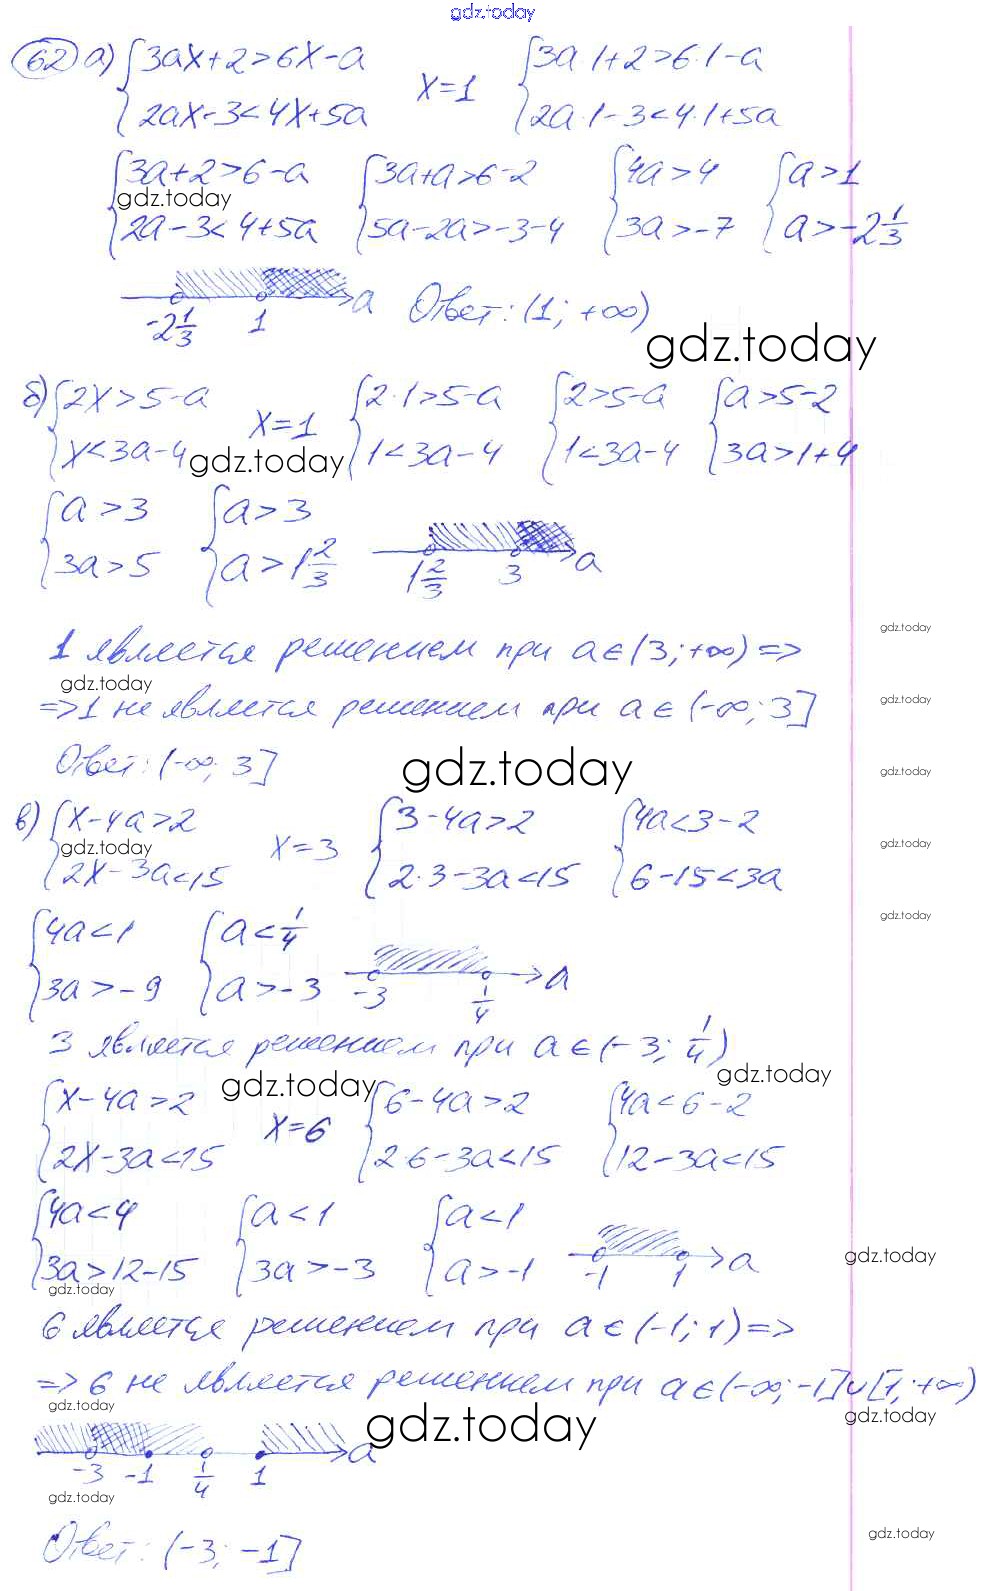 gdz.today
62 а) {3ax+2>6x-a {2ax-3<4x+5a x=1 {3a·1+2>6·1-a {2a·1-3<4·1+5a
{3a+2>6-a {2a-3<4+5a {3a+a>6-2 {5a-2a>-3-4 {4a>4 {3a>-7 {a>1 {a>-2 1/3
gdz.today
-2 1/3 1 a Ответ: (1; +∞)
gdz.today
б) {2x>5-a {x<3a-4 x=1 {2·1>5-a {1<3a-4 {2>5-a {1<3a-4 {a>5-2 {3a>1+4
gdz.today
{a>3 {3a>5 {a>3 {a>1 2/3 1 2/3 3 a
1 является решением при a∈(3;+∞)=>
gdz.today
gdz.today
=>1 не является решением при a∈(-∞;3]
gdz.today
Ответ: (-∞; 3]
gdz.today
gdz.today
в) {x-4a>2 {2x-3a<15 x=3 {3-4a>2 {2·3-3a<15 {4a<3-2 {6-15<3a
gdz.today
gdz.today
{4a<1 {3a>-9 {a<1/4 {a>-3 -3 1/4 a
gdz.today
3 является решением при a∈(-3; 1/4)
gdz.today
gdz.today
{x-4a>2 {2x-3a<15 x=6 {6-4a>2 {2·6-3a<15 {4a<6-2 {12-3a<15
{4a<4 {3a>12-15 {a<1 {3a>-3 {a<1 {a>-1 -1 1 a
gdz.today
gdz.today
6 является решением при a∈(-1;1)=>
=>6 не является решением при a∈(-∞;-1]∪[1;+∞)
gdz.today
gdz.today
gdz.today
-3 -1 1/4 1 a
gdz.today
gdz.today
Ответ: (-3; -1]